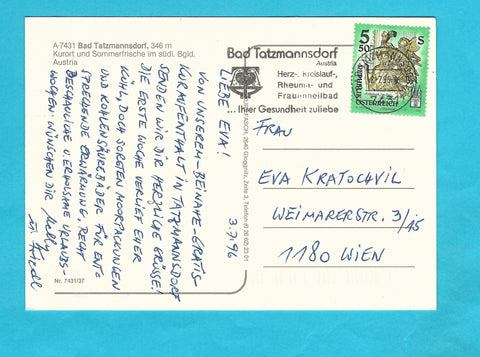 A-7431 Bad Tatzmannsdorf, 346 m
Kurort und Sommerfrische im südl. Bgld.
Austria
3.7.96
LIEBE EVA!
VON UNSEREM BEINAHE-GRATIS-
KURAUFENTHALT IN TATZMANNSDORF
SENDEN WIR DIR HERZLICHE GRÜSSE!
DIE ERSTE WOCHE VERLIEF EHER
KÜHL, DOCH SORGTEN MOORPACKUNGEN
UND KOHLENSÄUREBÄDER FÜR ENT-
SPRECHENDE ERWÄRMUNG. RECHT
BESCHAULICHE U. ERHOLSAME URLAUBS-
WOCHEN WÜNSCHEN DIR
Nr. 7431/37
2640 Gloggnitz, Zeile 3, Telefon
Bad Tatzmannsdorf
Austria
Herz-, Kreislauf-,
Rheuma- und
Frauenheilbad
... Ihrer Gesundheit zuliebe
5
50
S
REPUBLIK
ÖSTERREICH
FRAU
EVA KRATOCHVIL
WEIMARERSTR. 3/15
1180 WIEN